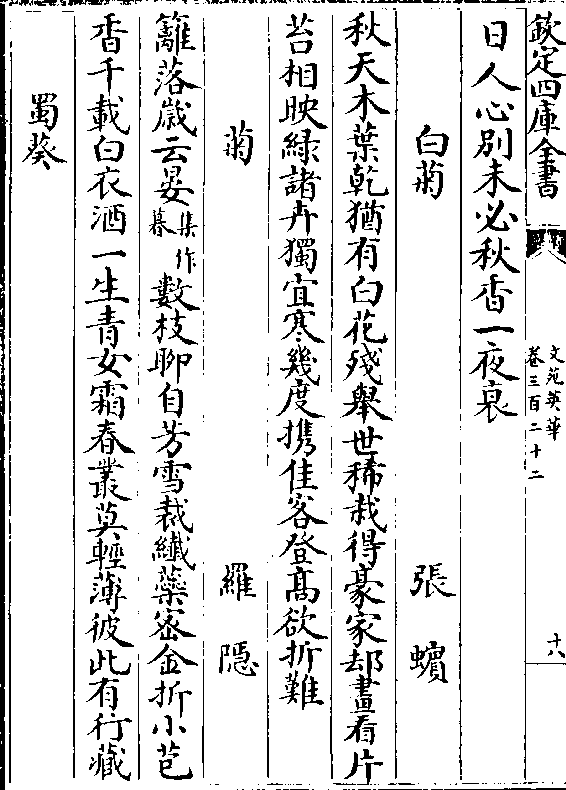 欽定四庫全書
文苑英華
卷三百二十二
十八
日人心别未必秋香一夜衰
白菊
張蠙
秋天木葉乾猶有白花殘舉世稀栽得豪家却畫看片
苔相映緑諸卉獨宜寒幾度携佳客登髙欲折難
菊
羅隠
籬落嵗云晏集作暮數枝聊自芳雪裁纎蘂宻金折小苞
香千載白衣酒一生青女霜春叢莫輕薄彼此有行藏
蜀葵